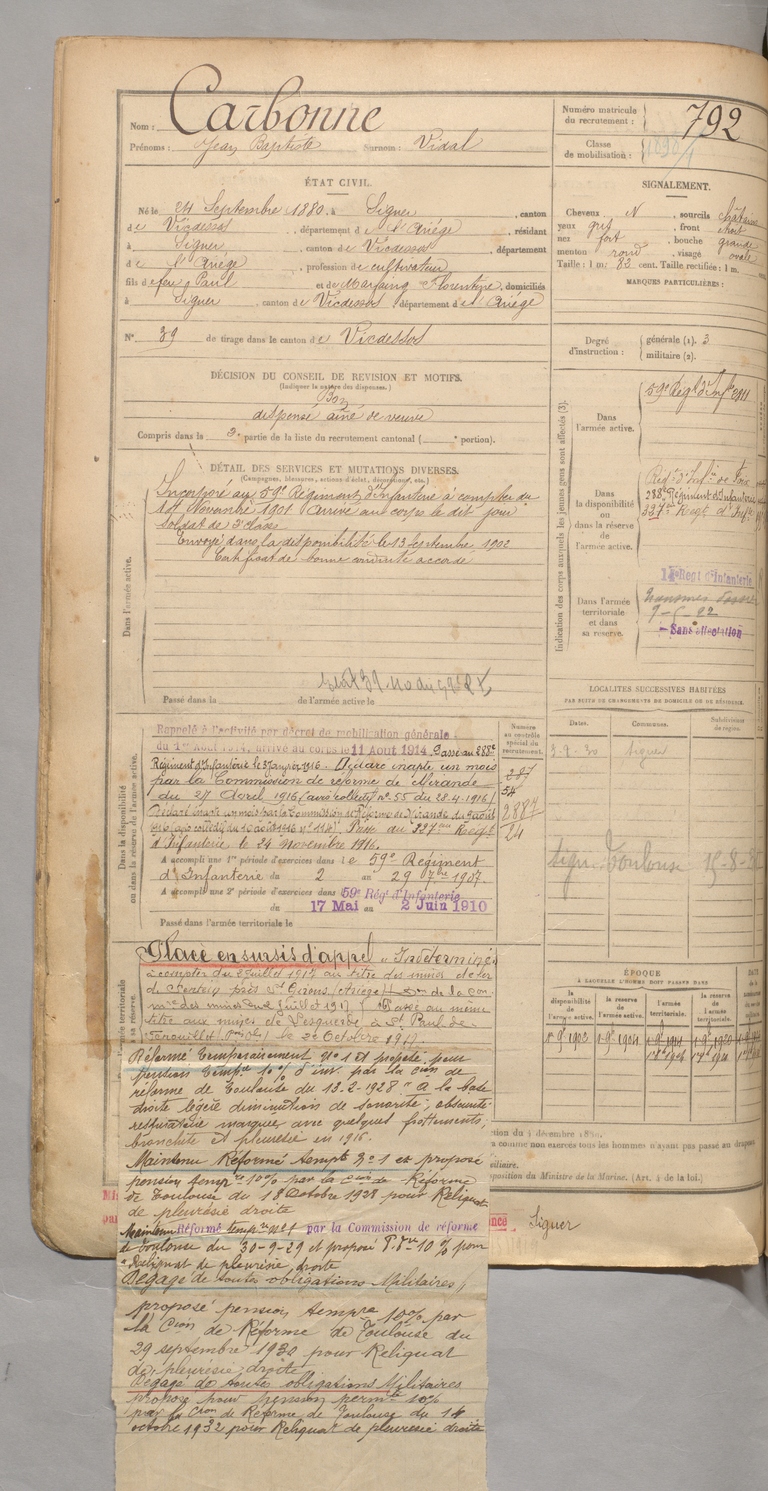 Nom : Carbonne
Prénoms : Jean Baptiste Surnom : Vidal
Numéro matricule du recrutement : 792
Classe de mobilisation :
ÉTAT CIVIL.
Né le 24 Septembre 1880, à Siguer, canton
de Vicdessos, département de l'Ariège, résidant
à Siguer, canton de Vicdessos, département
de l'Ariège, profession de cultivateur
fils de feu Paul et de Florentine, domiciliés
à Siguer, canton de Vicdessos, département de l'Ariège
N° 39 de tirage dans le canton de Vicdessos
SIGNALEMENT.
Cheveux N, sourcils châtains
yeux gris, front étroit
nez fort, bouche grande
menton rond, visage ovale
Taille : 1 m. 82 cent. Taille rectifiée : 1 m.
MARQUES PARTICULIÈRES :
Degré d'instruction : générale (1). 3
militaire (2).
DÉCISION DU CONSEIL DE REVISION ET MOTIFS.
(Indiquer la nature des dispenses.)
Bon
dispensé aîné de veuve
Compris dans la 3e partie de la liste du recrutement cantonal ( portion).
DÉTAIL DES SERVICES ET MUTATIONS DIVERSES.
(Campagnes, blessures, actions d'éclat, décorations, etc.)
Dans l'armée active.
Incorporé au 59e Régiment d'Infanterie à compter du
14 Novembre 1901 arrivé au corps le dit jour
soldat de 2e classe
Envoyé dans la disponibilité le 13 Septembre 1902
Certificat de bonne conduite accordé
Passé dans la de l'armée active le
Indication des corps auxquels les jeunes gens sont affectés (3).
Dans l'armée active.
59e Régt d'Inf.
Dans la disponibilité ou dans la réserve de l'armée active.
Régt d'Inf.ie de Foix
288e Régiment d'Infanterie
227me Régt d'Inf.
Dans l'armée territoriale et dans sa réserve.
Régt d'Infanterie
Sans affectation
LOCALITÉS SUCCESSIVES HABITÉES
PAR SUITE DE CHANGEMENTS DE DOMICILE OU DE RÉSIDENCE.
Dates. Communes. Subdivisions de région.
3-2-30 Siguer
Toulouse
Dans la disponibilité ou dans la réserve de l'armée active.
Numéro au contrôle spécial du recrutement.
Rappelé à l'activité par décret de mobilisation générale
du 1er Août 1914, arrivé au corps le 11 Août 1914. Passé au 288e
Régiment d'Infanterie le 1916. Déclaré inapte un mois
par la Commission de réforme de Mirande
du 27 Avril 1916 (avis collectif n° 55 du 28.4.1916)
Déclaré inapte un mois par la Commission de Réforme de Mirande du 9 août
1916 (avis collectif du 10 août 1916 n° 114). Passé au 227me Régt
d'Infanterie le 24 novembre 1916.
A accompli une 1re période d'exercices dans le 59e Régiment
d'Infanterie du 2 au 29 7bre 1907.
A accompli une 2e période d'exercices dans 59e Rég d'Infanterie
du 17 Mai au 2 Juin 1910
Passé dans l'armée territoriale le
287
54
2887
24
Placé en sursis d'appel "Indéterminé"
à compter du 2 juillet 1917 au titre des mines de fer
de près St Girons (Ariège)
des mines du 2 juillet 1917 Passé au même
titre aux mines de Lesquerde à St Paul de
Fenouillet le 22 Octobre 1917.
Réformé Temporairement N° 1 et proposé pour
pension Tempre 10% d'inv. par la Cion de
réforme de Toulouse du 13-2-1928 "à la base
droite légère diminution de sonorité, obscurité
respiratoire marquée avec quelques frottements,
bronchite et pleurésie en 1916.
Maintenu Réformé tempre N° 1 et proposé
pension tempre 10% par la Cion de Réforme
de Toulouse du 18 Octobre 1928 pour Reliquat
de pleurésie droite
Maintenu Réformé tempre n° 1 par la Commission de réforme
de Toulouse du 30-9-29 et proposé P. 10 % pour
"Reliquat de pleurésie droite
Dégagé de toutes obligations Militaires,
proposé pension tempre 10% par
la Cion de Réforme de Toulouse du
29 septembre 1930 pour Reliquat
de pleurésie droite
Dégagé de toutes obligations Militaires
proposé pour pension perm. 10%
par la Cion de Réforme de Toulouse du 14
octobre 1932 pour Reliquat de pleurésie droite
ÉPOQUE
À LAQUELLE L'HOMME DOIT PASSER DANS
la disponibilité de l'armée active. la réserve de l'armée active. l'armée territoriale. la réserve de l'armée territoriale.
du 3 décembre
comme non exercés tous les hommes n'ayant pas passé au drapeau
disposition du Ministre de la Marine. (Art. 4 de la loi.)
Siguer